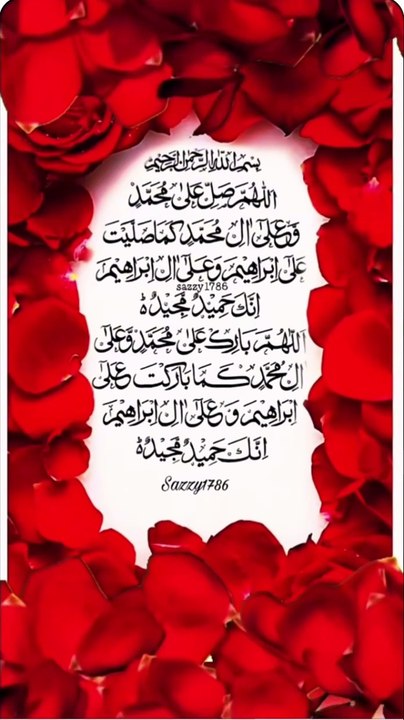 بسم الله الرحمن الرحيم
اللّٰهُمَّ صَلِّ عَلٰى مُحَمَّدٍ
وَّعَلٰى اٰلِ مُحَمَّدٍ كَمَا صَلَّيْتَ
عَلٰى اِبْرَاهِيْمَ وَعَلٰى اٰلِ اِبْرَاهِيْمَ
sazzy1786
اِنَّكَ حَمِيْدٌ مَّجِيْدٌ ؕ
اَللّٰهُمَّ بَارِكْ عَلٰى مُحَمَّدٍ وَّعَلٰى
اٰلِ مُحَمَّدٍ كَمَا بَارَكْتَ عَلٰى
اِبْرَاهِيْمَ وَعَلٰى اٰلِ اِبْرَاهِيْمَ
اِنَّكَ حَمِيْدٌ مَّجِيْدٌ ؕ
Sazzy1786